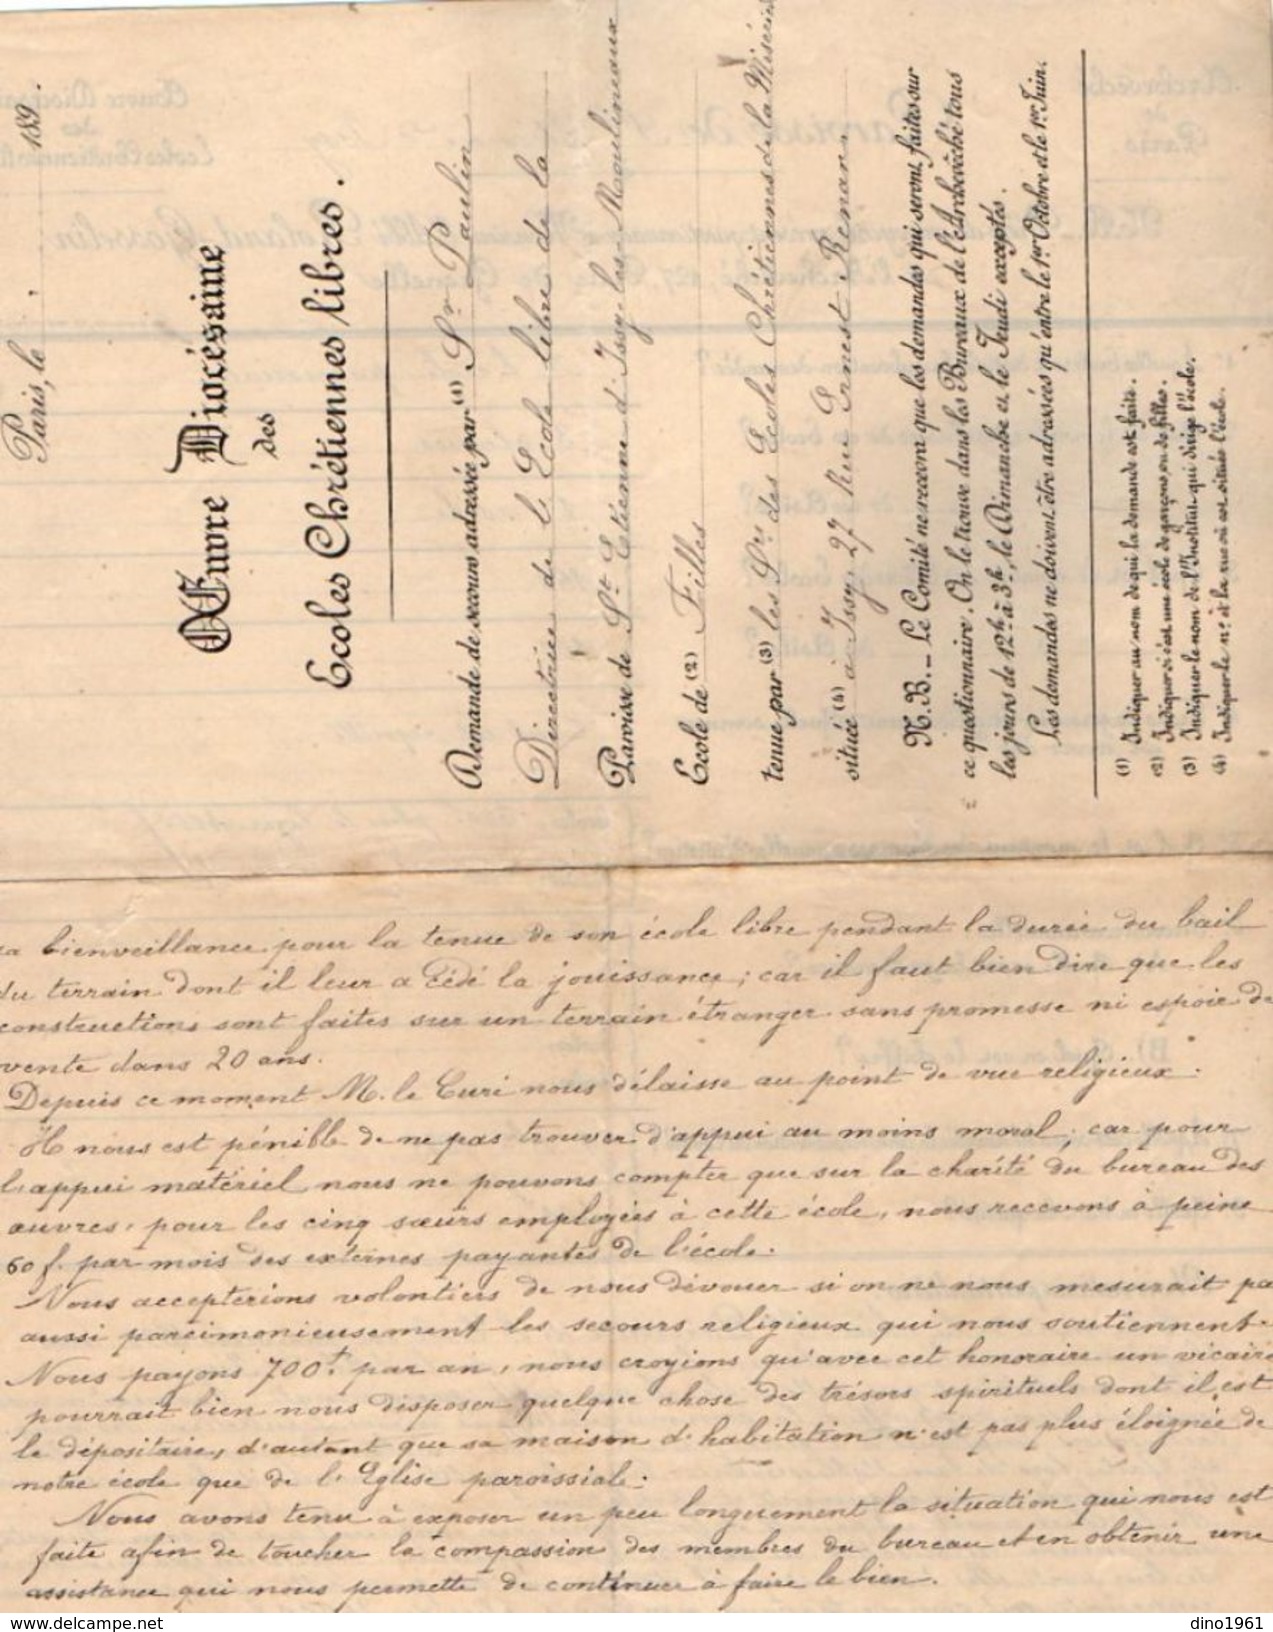 Paris, le 189 .
Œuvre Diocésaine
des
Ecoles Chrétiennes libres.
Demande de secours adressée par (1) Sr Paulin
Directrice de l'Ecole libre de la
Paroisse de St Etienne d'Issy-les-Moulineaux
Ecole de (2) Filles
tenue par (3) les Srs des Ecoles Chrétiennes de la Miséric
située (4) à Issy 27 Rue Ernest Renan.
N.B. _ Le Comité ne recevra que les demandes qui seront faites sur
ce questionnaire. On le trouve dans les Bureaux de l'Archevêché tous
les jours de 12h à 3h, le Dimanche et le Jeudi exceptés.
Les demandes ne doivent être adressées qu'entre le 1er Octobre et le 1er Juin.
(1) Indiquer au nom de qui la demande est faite.
(2) Indiquer si c'est une école de garçons, ou de filles.
(3) Indiquer le nom de l'Institut qui dirige l'école.
(4) Indiquer le n° & la rue où est située l'école.
sa bienveillance pour la tenue de son école libre pendant la durée du bail
du terrain dont il leur a cédé la jouissance ; car il faut bien dire que les
constructions sont faites sur un terrain étranger sans promesse ni espoir de
vente dans 20 ans.
Depuis ce moment M. le Curé nous délaisse au point de vue religieux.
Il nous est pénible de ne pas trouver d'appui au moins moral ; car pour
l'appui matériel nous ne pouvons compter que sur la charité du bureau des
œuvres, pour les cinq sœurs employées à cette école, nous recevons à peine
60 f. par mois des externes payantes de l'école.
Nous accepterions volontiers de nous dévouer si on ne nous mesurait pa
aussi parcimonieusement les secours religieux qui nous soutiennent.
Nous payons 700f. par an, nous croyions qu'avec cet honoraire un vicaire
pourrait bien nous disposer quelque chose des trésors spirituels dont il est
le dépositaire, d'autant que sa maison d'habitation n'est pas plus éloignée de
notre école que de l'Eglise paroissiale.
Nous avons tenu à exposer un peu longuement la situation qui nous est
faite afin de toucher la compassion des membres du bureau et en obtenir une
assistance qui nous permette de continuer à faire le bien.
delcampe.net
dino1961